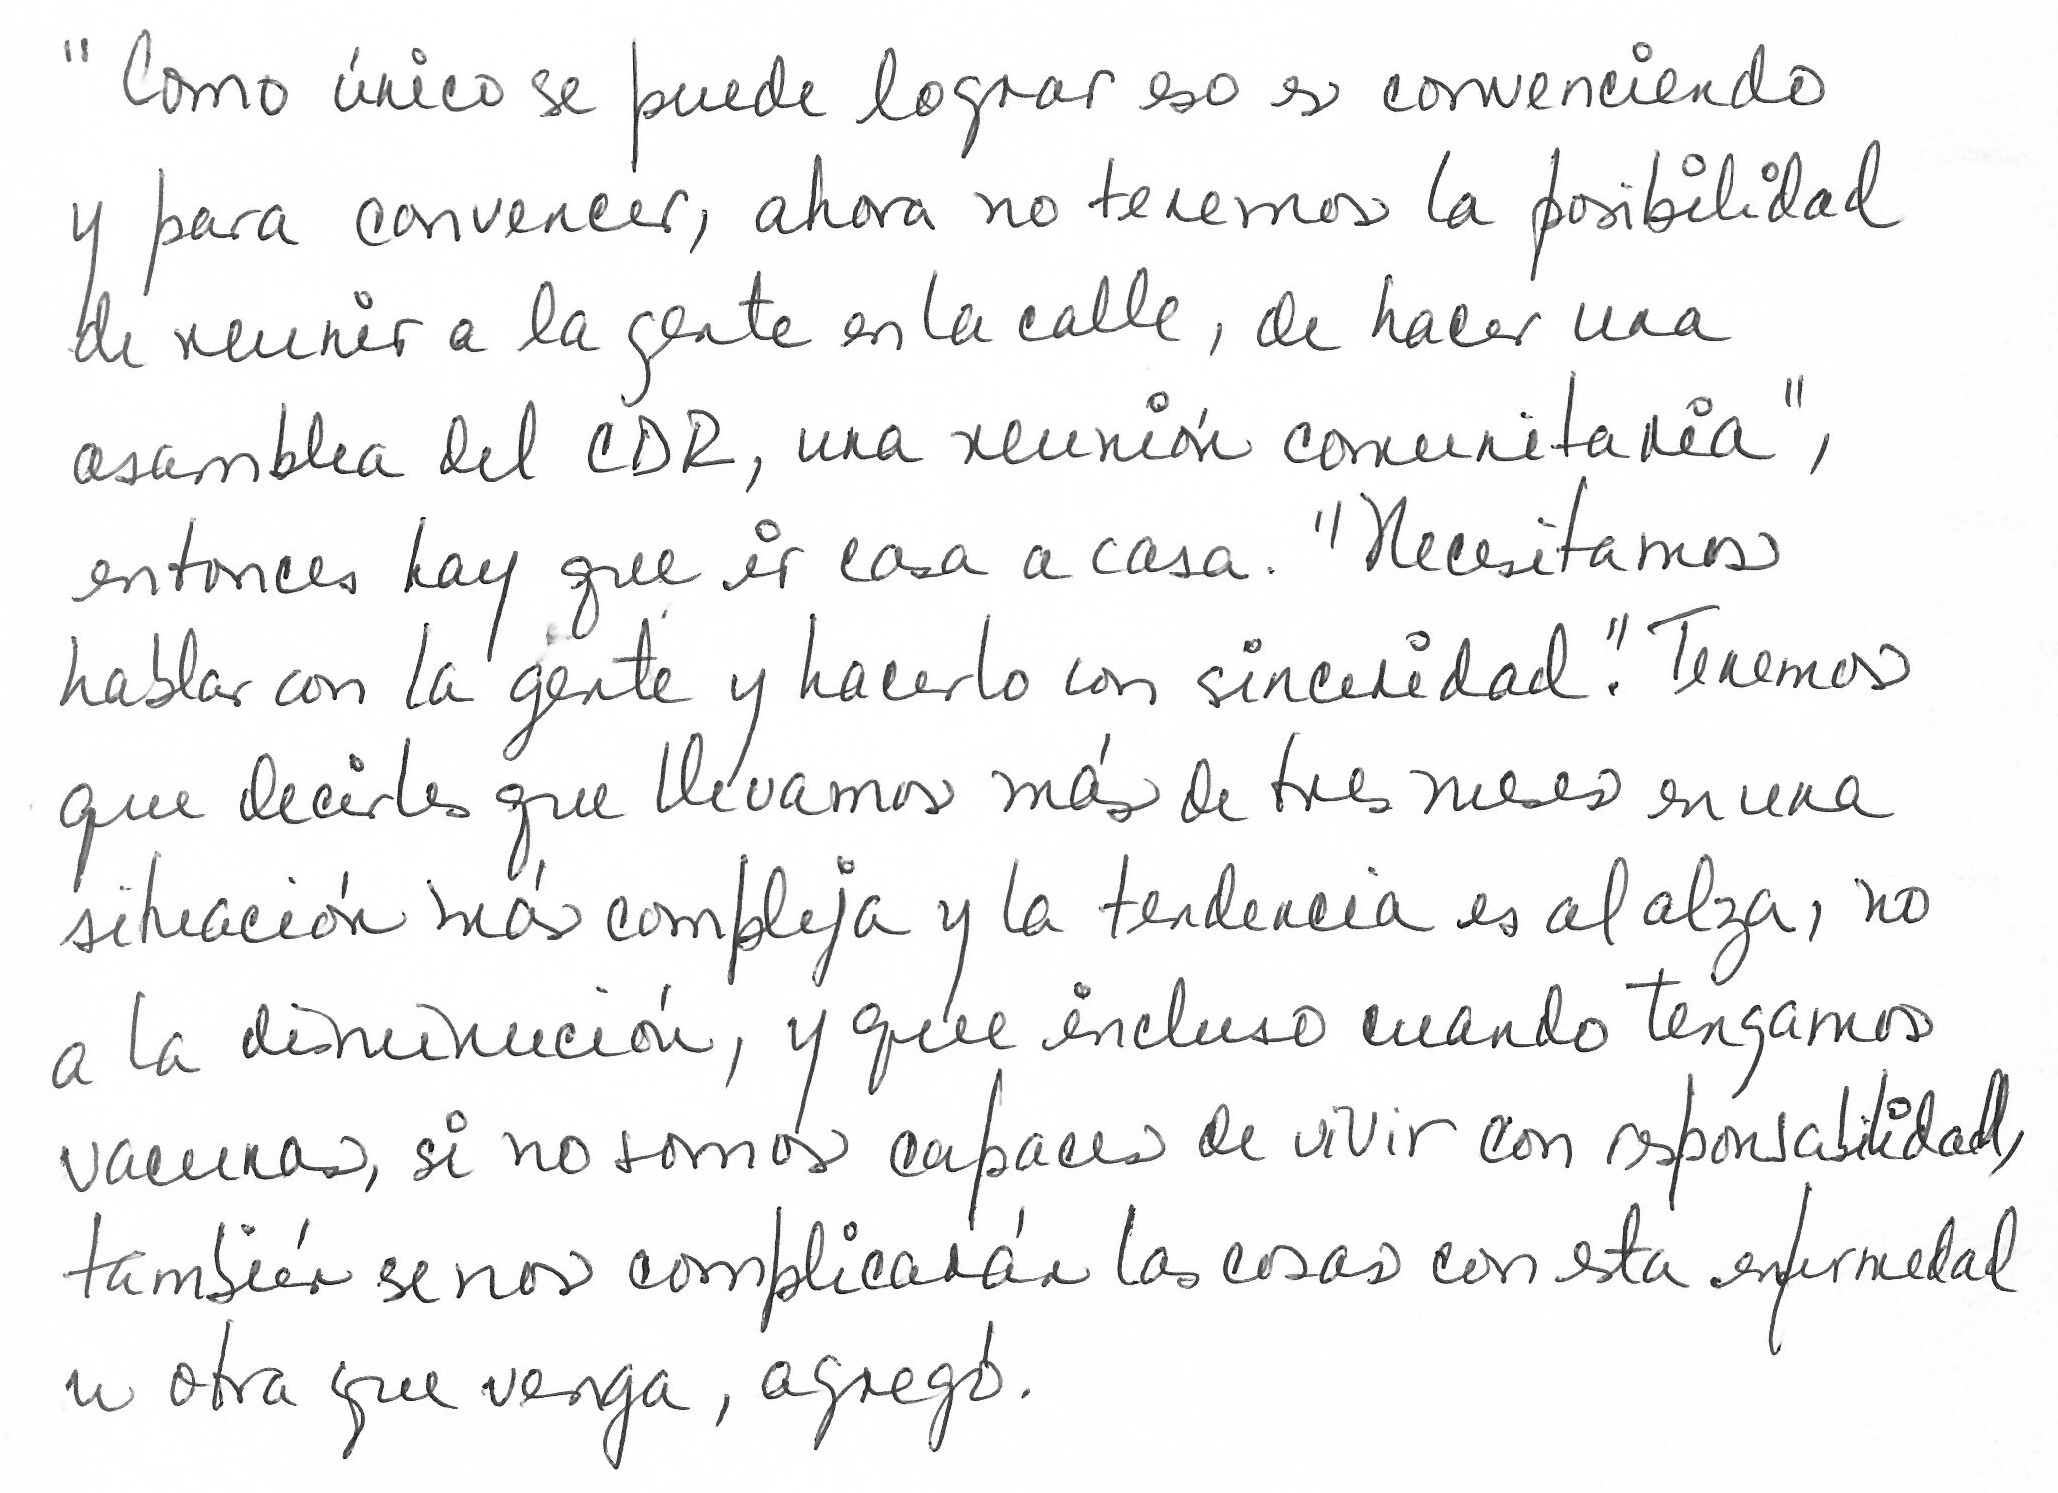 "Como único se puede lograr eso es convenciendo
y para convencer, ahora no tenemos la posibilidad
de reunir a la gente en la calle, de hacer una
asamblea del CDR, una reunión comunitaria",
entonces hay que ir casa a casa. "Necesitamos
hablar con la gente y hacerlo con sinceridad". Tenemos
que decirles que llevamos más de tres meses en una
situación más compleja y la tendencia es al alza, no
a la disminución, y que incluso cuando tengamos
vacunas, si no somos capaces de vivir con responsabilidad,
también se nos complicarán las cosas con esta enfermedad
u otra que venga, agregó.